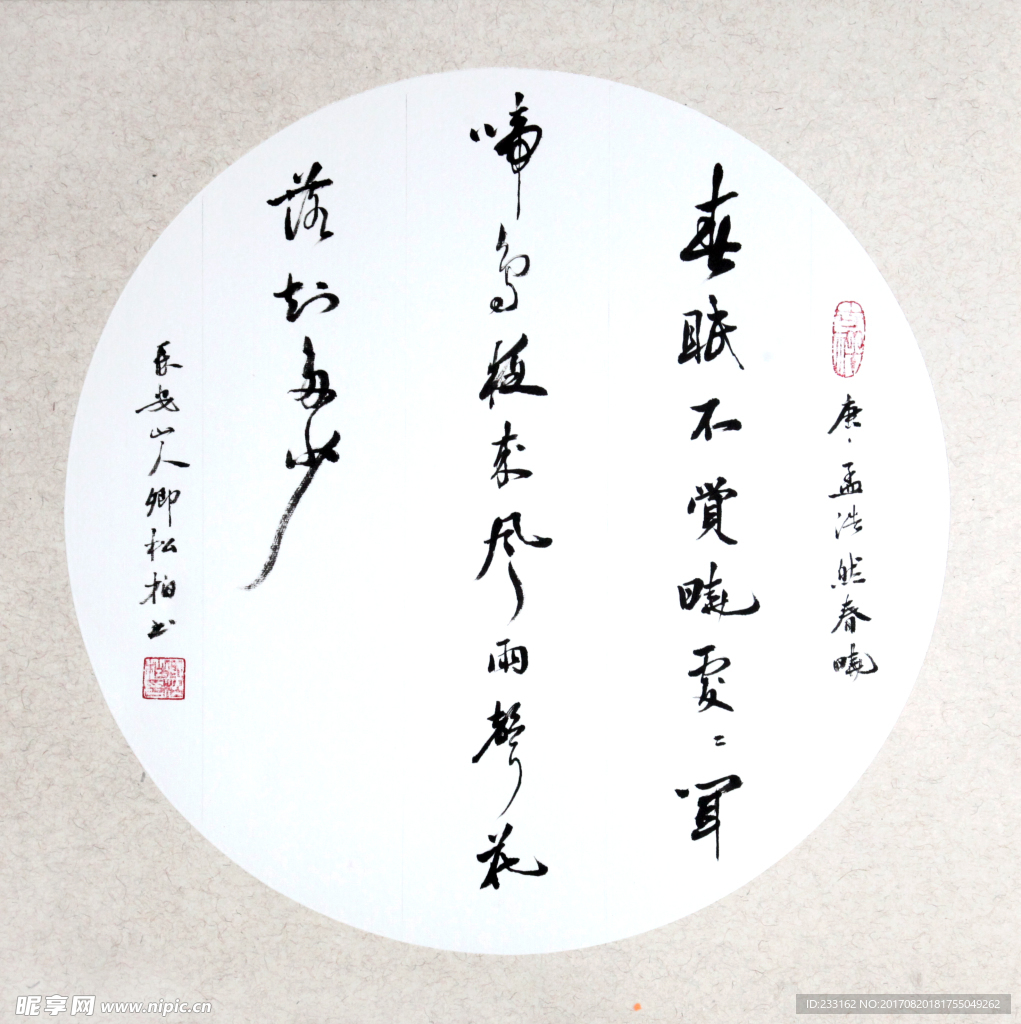 唐、孟浩然春曉
春眠不覺曉處〻聞
啼鳥夜来風雨聲花
落知多少
長安山人卿松柏书
昵享网 www.nipic.cn
ID:233162 NO:20170820181755049262